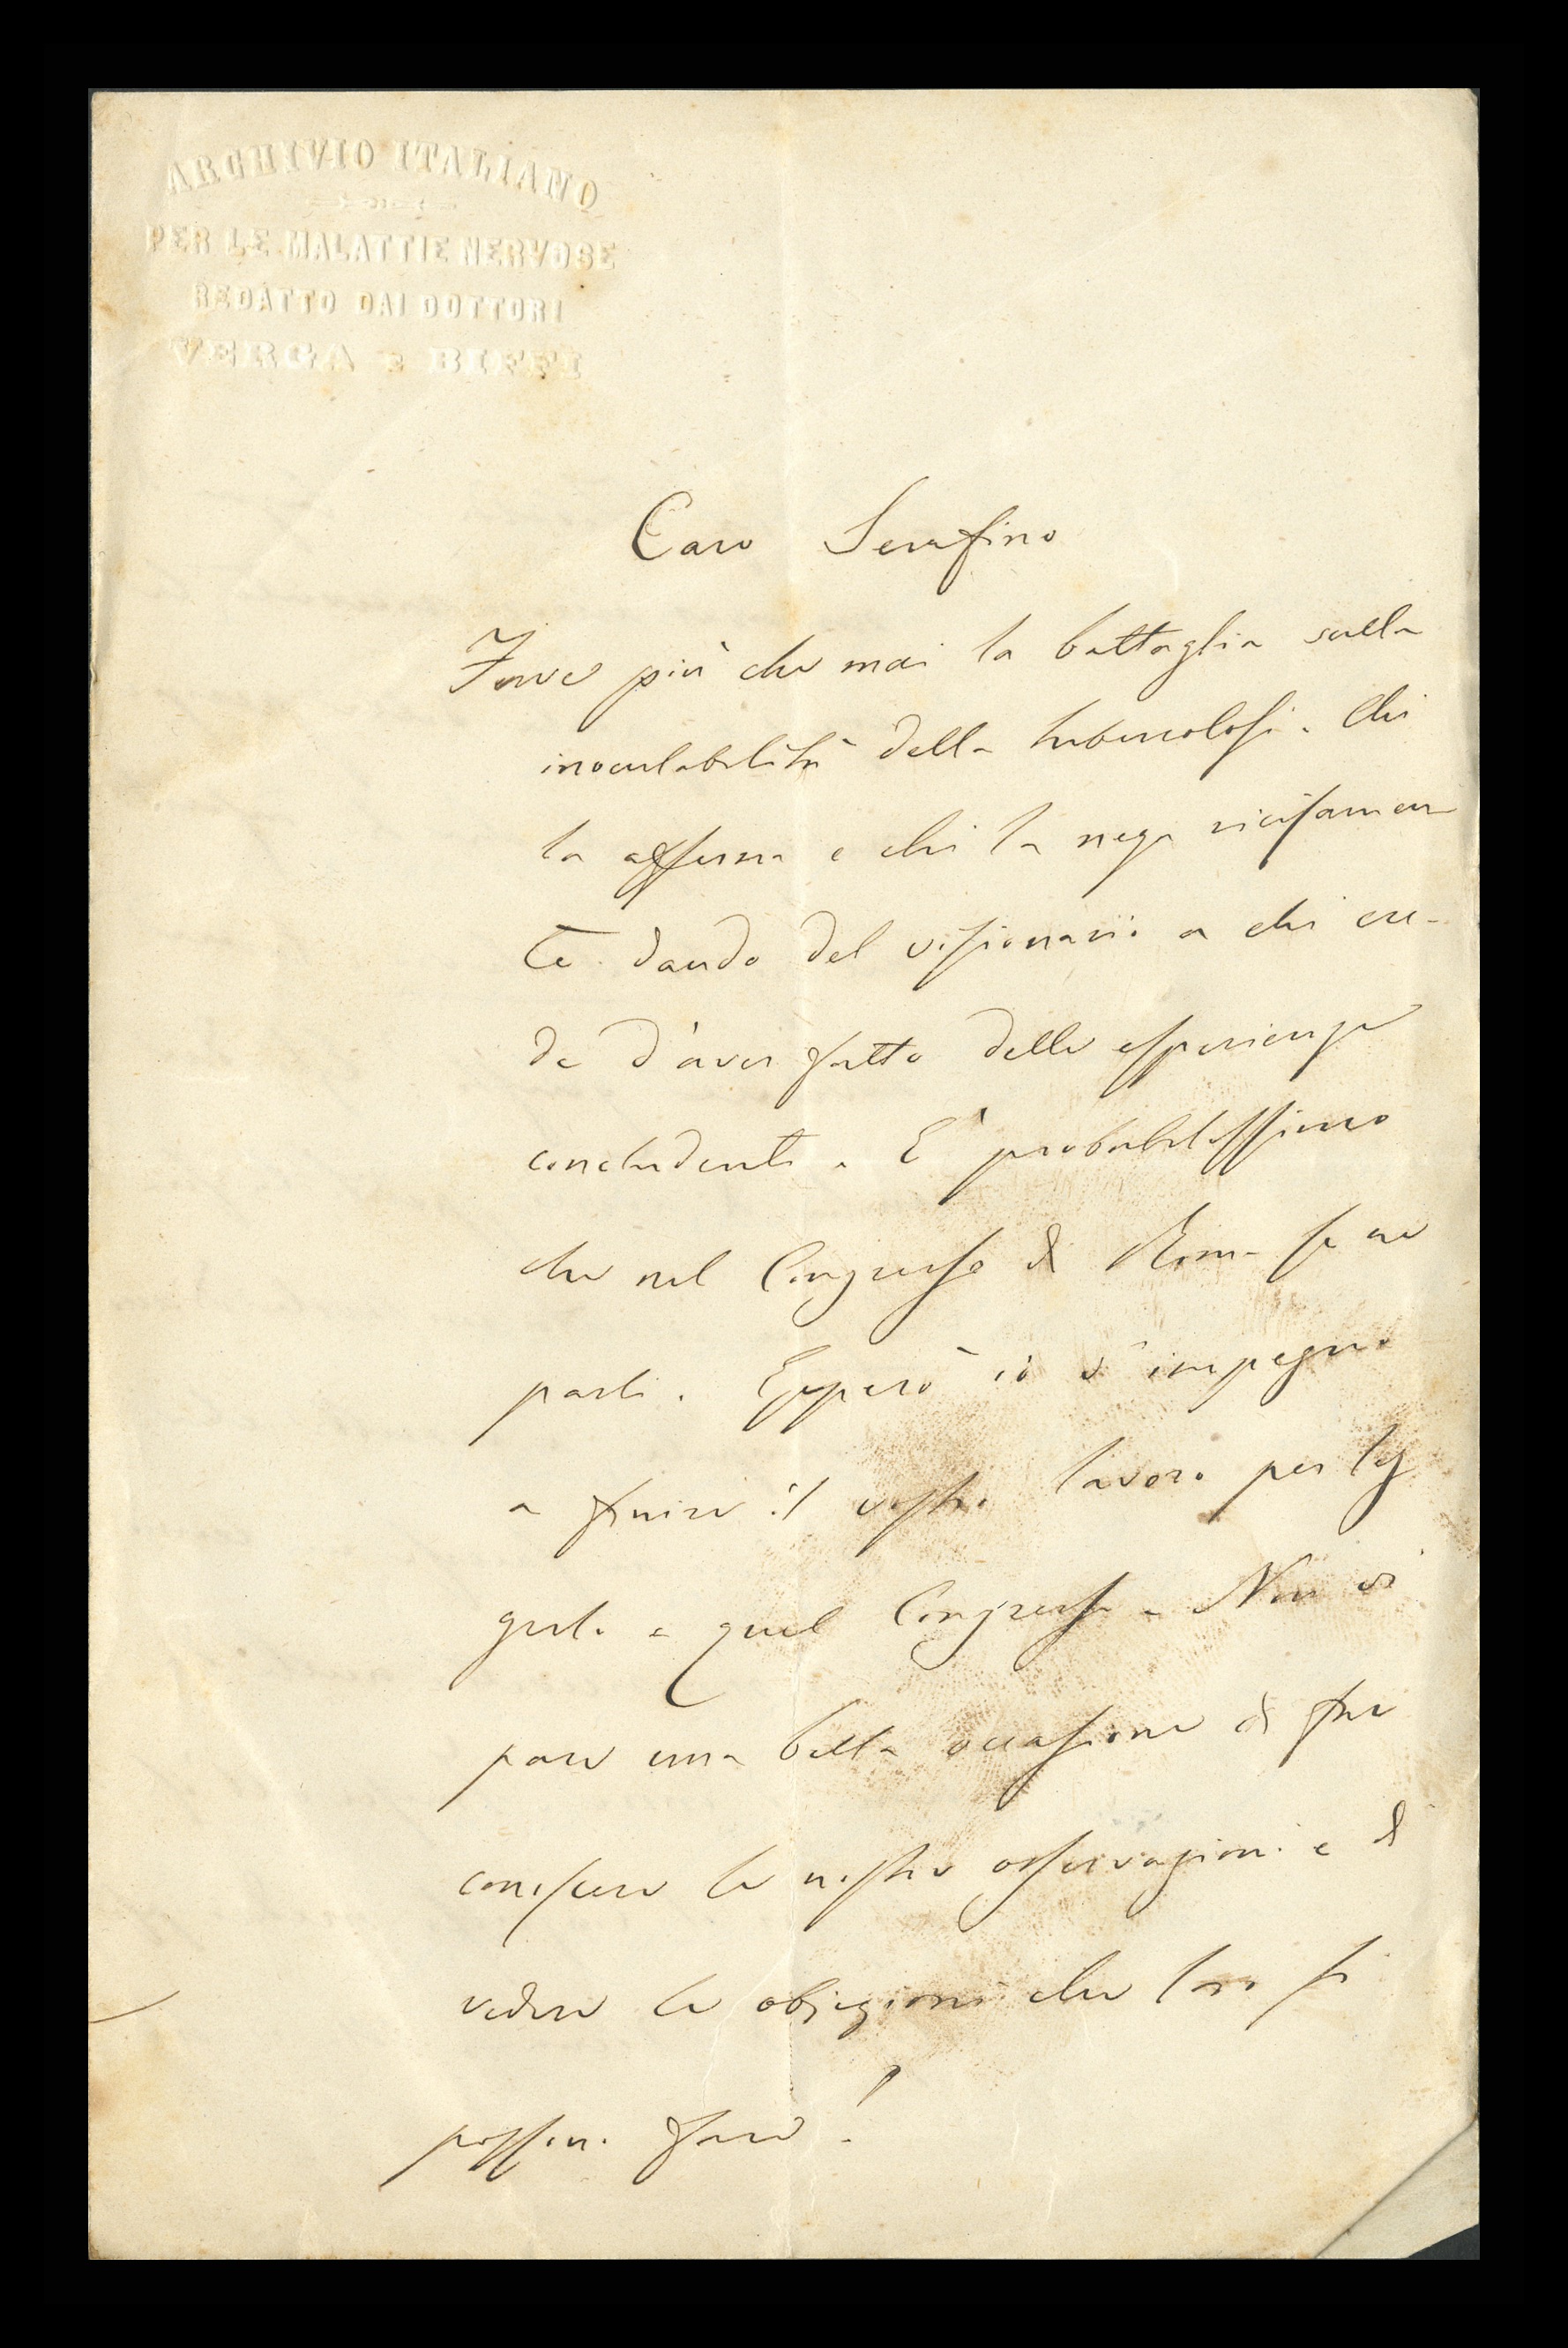 ARCHIVIO ITALIANO
PER LE MALATTIE NERVOSE
REDATTO DAI DOTTORI
VERGA E BIFFI
Caro Serafino
Ferve più che mai la battaglia sulla
inoculabilità della tubercolosi. Chi
la afferma e chi la nega recisamen
te dando del visionario a chi cre-
de d'aver fatto delle esperienze
concludenti. E' probabilissimo
che nel Congresso di Roma se ne
parli. Epperò io v'impegno
a finire il vostro lavoro per leg
gerlo a quel Congresso. Non vi
pare una bella occasione di far
conoscere le nostre osservazioni e di
vedere le objezioni che loro si
possono fare!